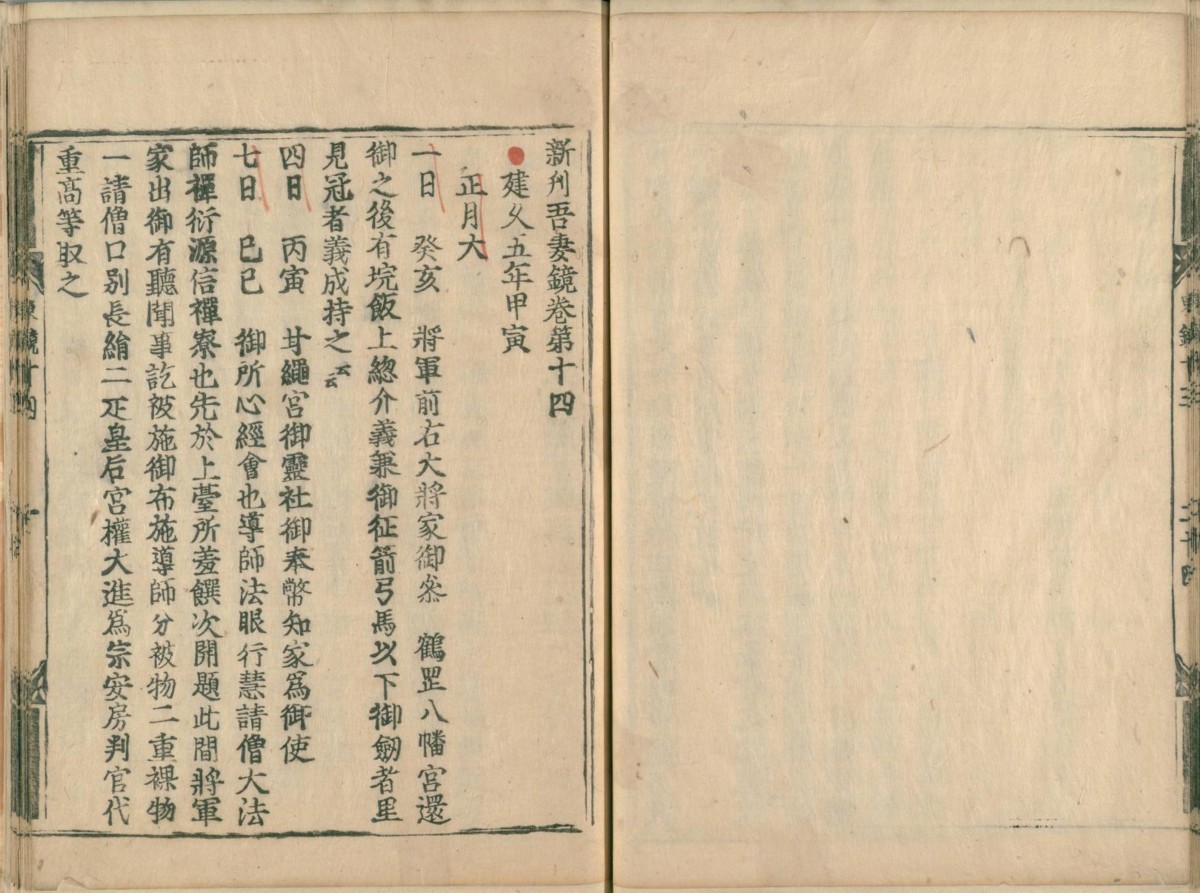 新刋吾妻鏡卷第十四
建久五年甲寅
正月大
一日 癸亥 將軍前右大將家御參 鶴罡八幡宮還
御之後有垸飯上總介義兼御征箭弓馬以下御劔者里
見冠者義成持之云云
四日 丙寅 甘繩宮御靈社御奉幣知家爲御使
七日 巳巳 御所心經會也導師法眼行慧請僧大法
師禪衍源信禪寮也先於上臺所羞饌次開題此間將軍
家出御有聽聞事訖被施御布施導師分被物二重裸物
一請僧口别長絹二疋皇后宮權大進爲宗安房判官代
重髙等取之
東鏡十四